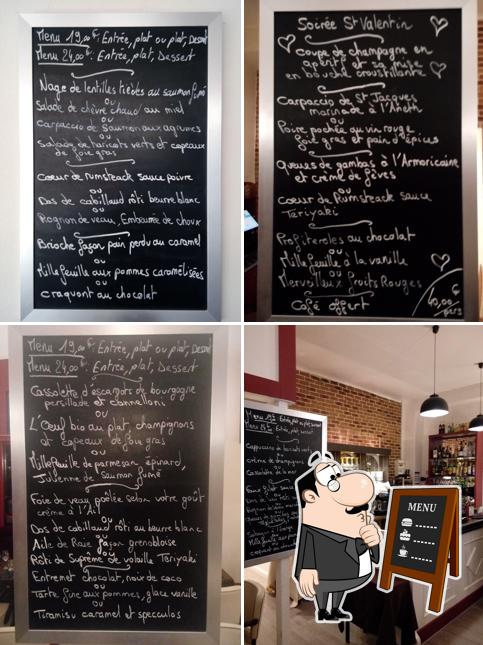 Menu 19,00€: Entrée, plat ou plat, Dessert
Menu 24,00€: Entrée, plat, Dessert
Nage de lentilles tièdes au saumon fumé
ou
Salade de chèvre chaud au miel
ou
Carpaccio de saumon aux agrumes
ou
Salade de haricots verts et copeaux
de foie gras
Coeur de rumsteack sauce poivre
ou
Dos de cabillaud rôti beurre blanc
ou
Rognon de veau, Embeurrée de choux
Brioche façon pain perdu au caramel
ou
Millefeuille aux pommes caramélisées
ou
craquant au chocolat
Soirée St Valentin
Coupe de champagne en
apéritif et sa mise
en bouche croustillante
Carpaccio de St Jacques
marinade à l'Aneth
ou
Poire pochée au vin rouge
foie gras et pain d'épices
Queues de gambas à l'Armoricaine
et crème de fèves
ou
Coeur de Rumsteack sauce
Teriyaki
Profiteroles au chocolat
ou
Millefeuille à la vanille
ou
Merveilleux Fruits Rouges
Café offert
40,00€
pers
Menu 19.00€: Entrée, plat ou plat, Dessert
Menu 24,00€: Entrée, plat, Dessert
Cassolette d'escargots de bourgogne
persillade et cannellonis
ou
L'Oeuf bio au plat, champignons
et copeaux de foie gras
ou
Millefeuille de parmesan, épinard,
Julienne de saumon fumé
Foie de veau poêlée selon votre goût
crème à l'Ail
ou
Dos de cabillaud rôti au beurre blanc
ou
Aile de Raie façon grenobloise
ou
Rôti de Suprême de volaille Teriyaki
Entremet chocolat, noix de coco
ou
Tarte fine aux pommes, glace vanille
ou
Tiramisu caramel et speculos
Menu 19€: Entrée, plat ou plat, dessert
Menu 24€: Entrée, plat, dessert
MENU